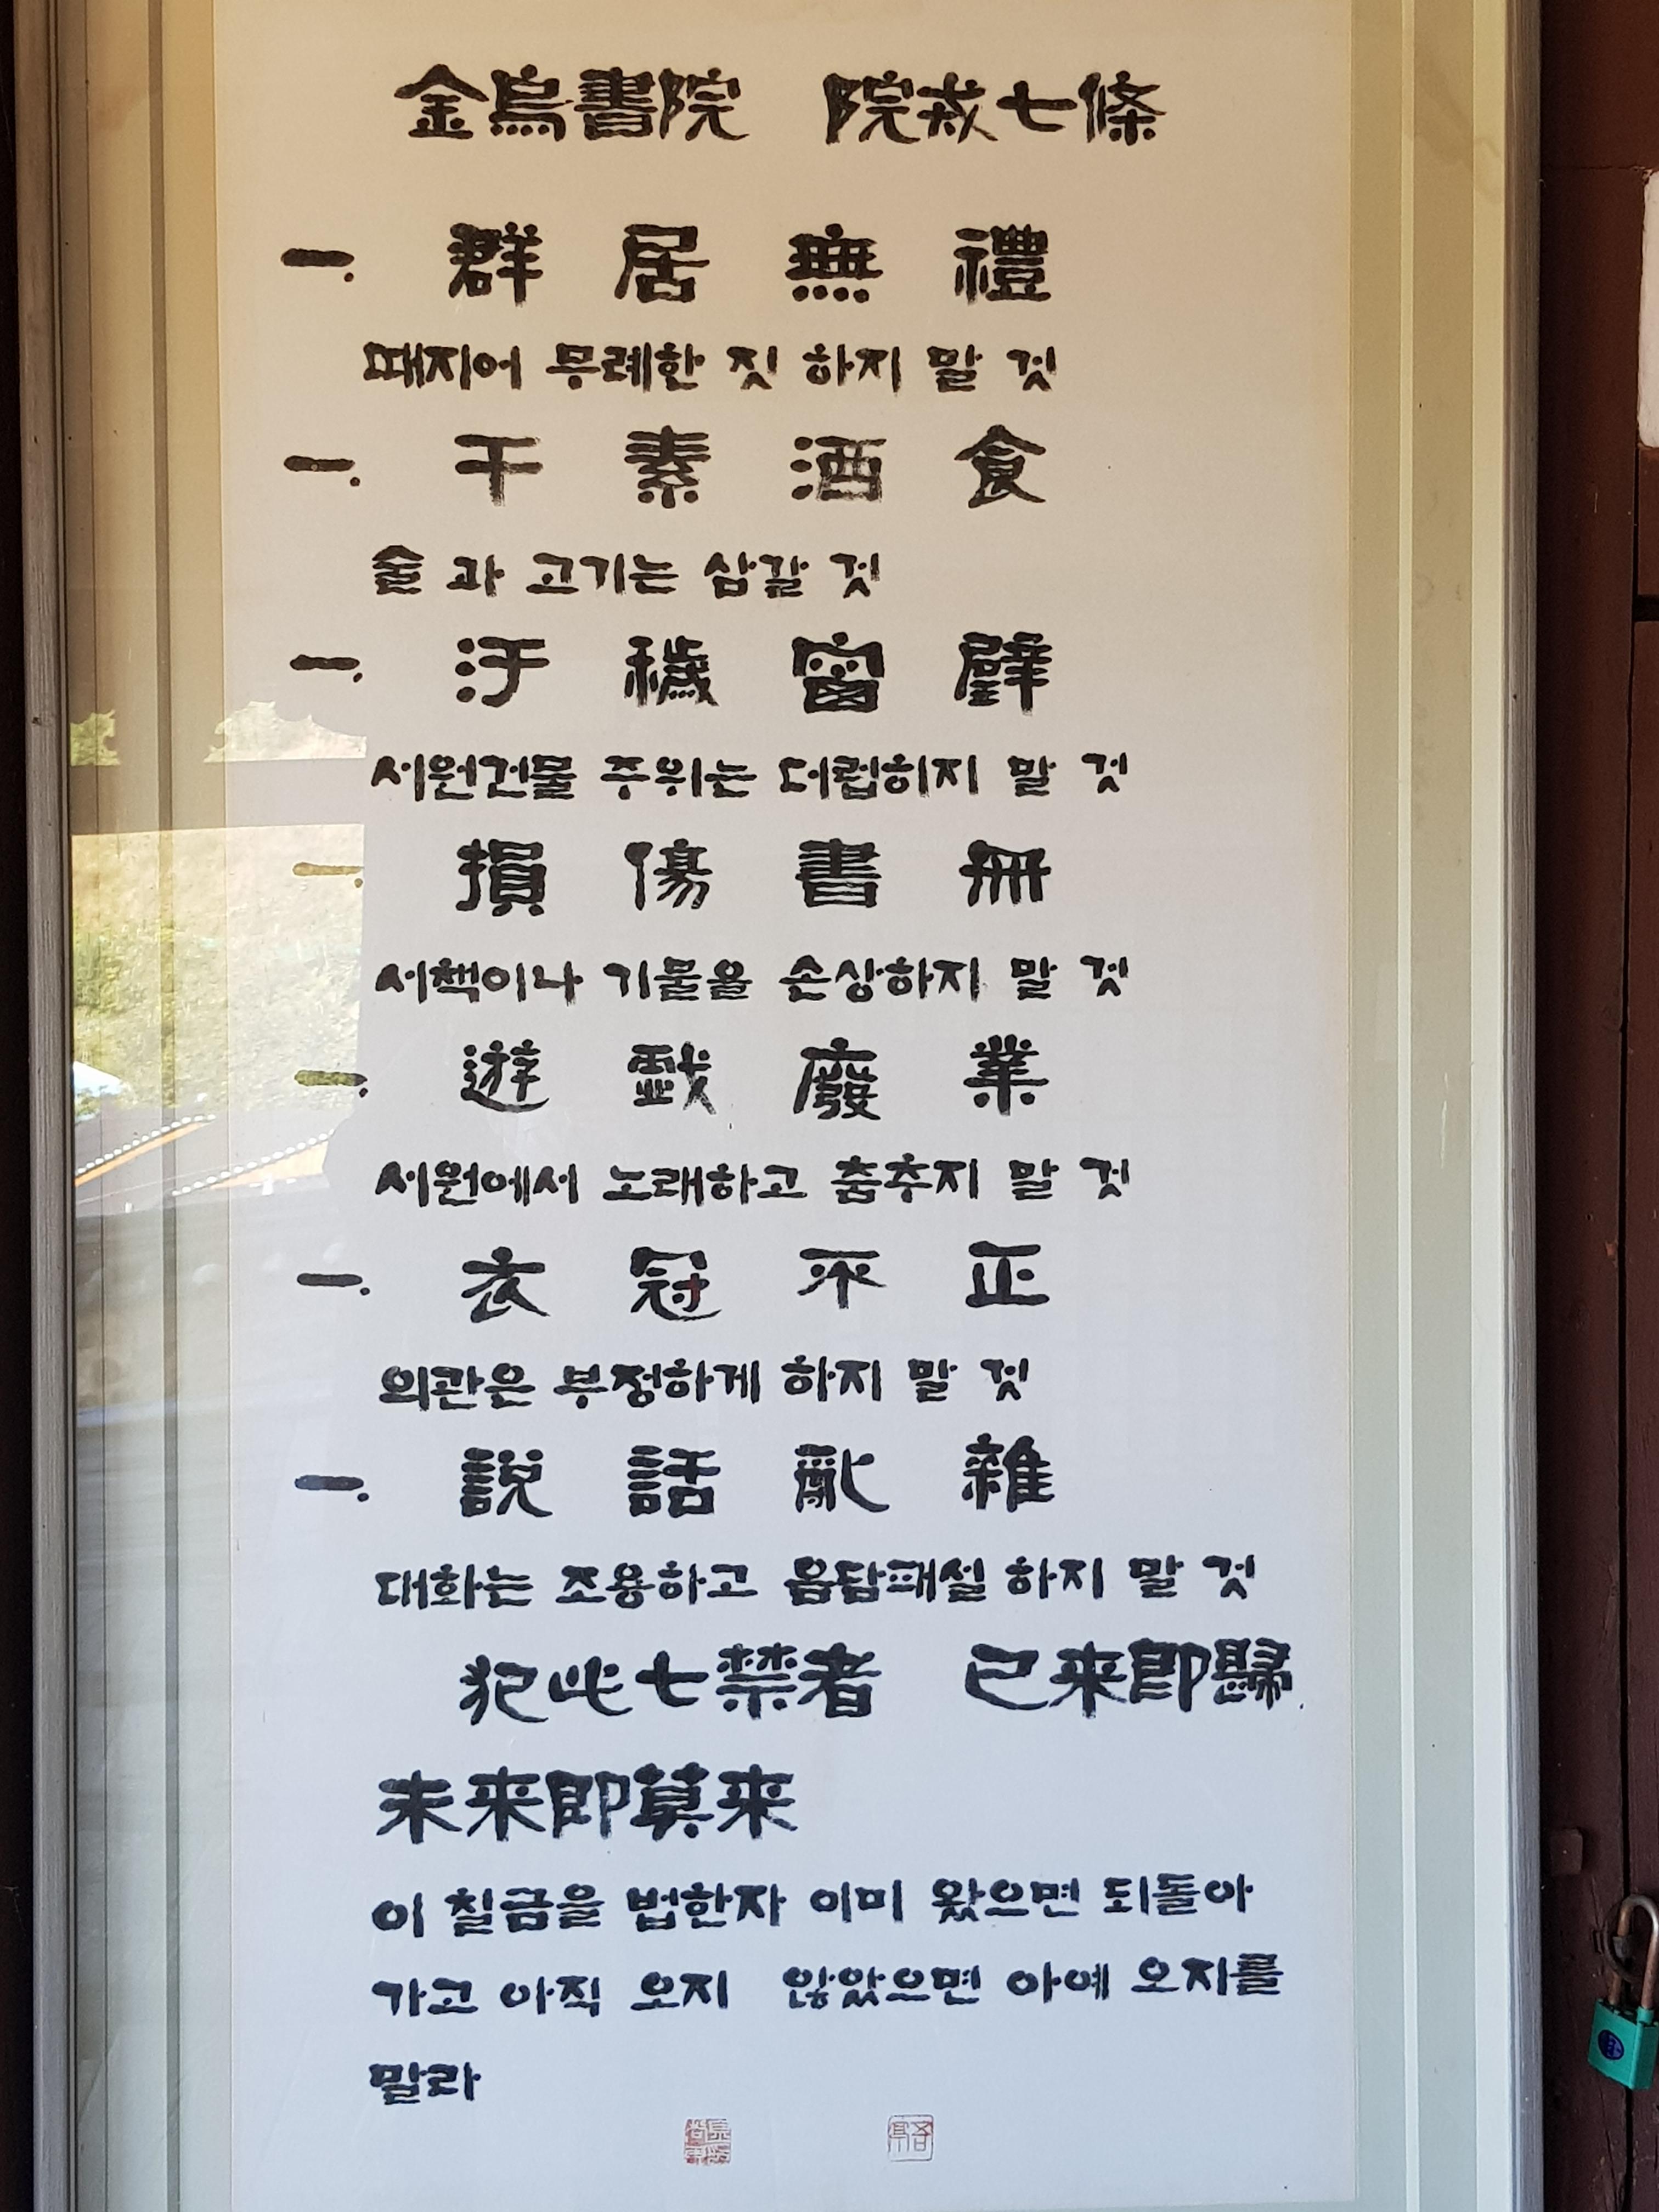 金烏書院 院戒七條
一. 群居無禮
떼지어 무례한 짓 하지 말 것
一. 干素酒食
술과 고기는 삼갈 것
一. 汙穢窗壁
서원건물 주위는 더럽히지 말 것
一. 損傷書冊
서책이나 기물을 손상하지 말 것
一. 遊戱廢業
서원에서 노래하고 춤추지 말 것
一. 衣冠不正
의관은 부정하게 하지 말 것
一. 說話亂雜
대화는 조용하고 음담패설 하지 말 것
犯此七禁者 已来即歸.
未来即莫来
이 칠금을 법한자 이미 왔으면 되돌아
가고 아직 오지 않았으면 아예 오지를
말라